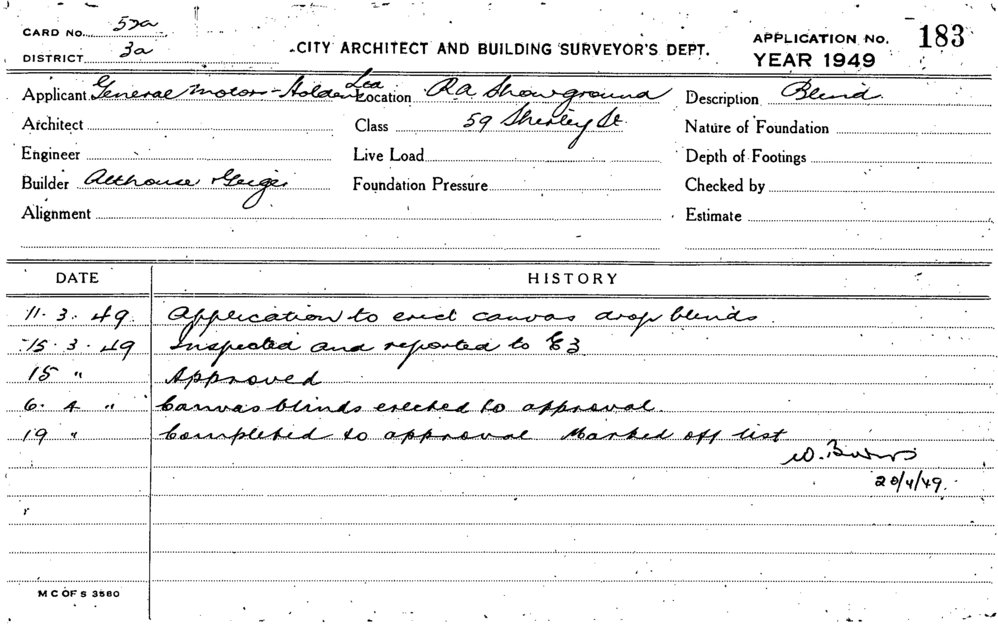 CARD NO. 52a
DISTRICT 3a
CITY ARCHITECT AND BUILDING SURVEYOR'S DEPT.
APPLICATION NO. 183
YEAR 1949
Applicant General Motors-Holden Location RA Showground Description Blind
Architect Class 59 Nature of Foundation
Engineer Live Load Depth of Footings
Builder Foundation Pressure Checked by
Alignment Estimate
DATE HISTORY
11.3.49 Application to erect canvas drop blinds
15.3.49 Inspected and reported to E3
15 " Approved
6.4 " Canvas blinds erected to approval.
19 " Completed to approval Marked off list
20/4/49.
M C OF S 3580